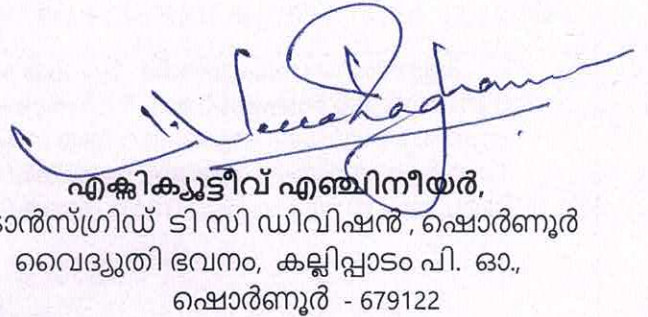 എക്സിക്യൂട്ടീവ് എഞ്ചിനീയർ,
ടി സി ഡിവിഷൻ , ഷൊർണൂർ
വൈദ്യുതി ഭവനം, കല്ലിപ്പാടം പി. ഓ.,
ഷൊർണൂർ - 679122